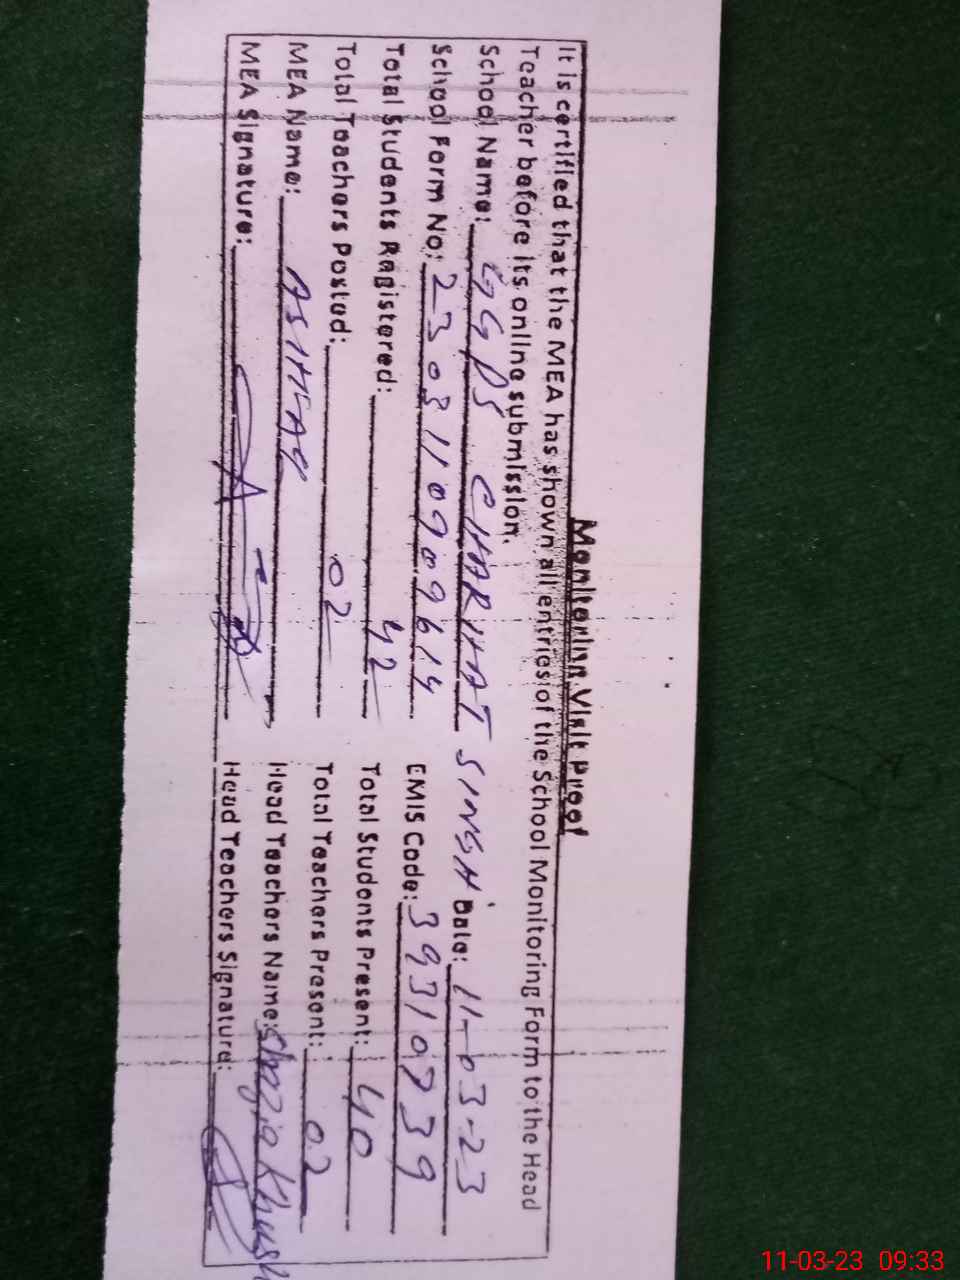 Monitoring Visit Proof
It is certified that the MEA has shown all entries of the School Monitoring Form to the Head
Teacher before its online submission.
School Name: GGPS CHARHAT SINGH Date: 11-03-23
School Form No: EMIS Code: 39310739
Total Students Registered: 42 Total Students Present: 40
Total Teachers Posted: 02 Total Teachers Present: 02
MEA Name: Head Teachers Name: Shazia Khush
MEA Signature: Head Teachers Signature:
11-03-23 09:33